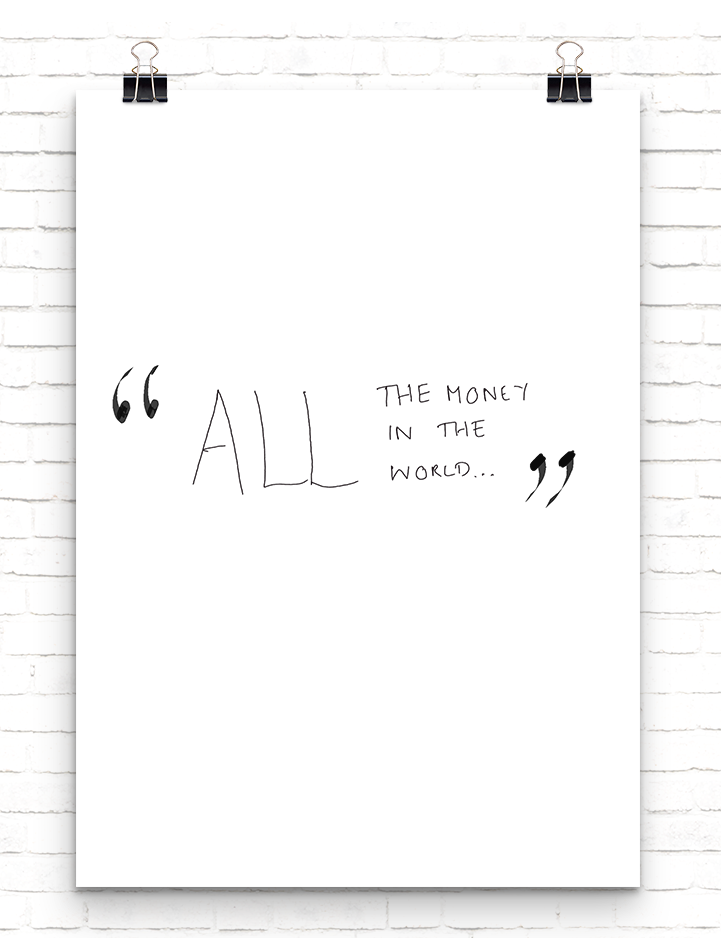 “ALL THE MONEY
IN THE
WORLD...”